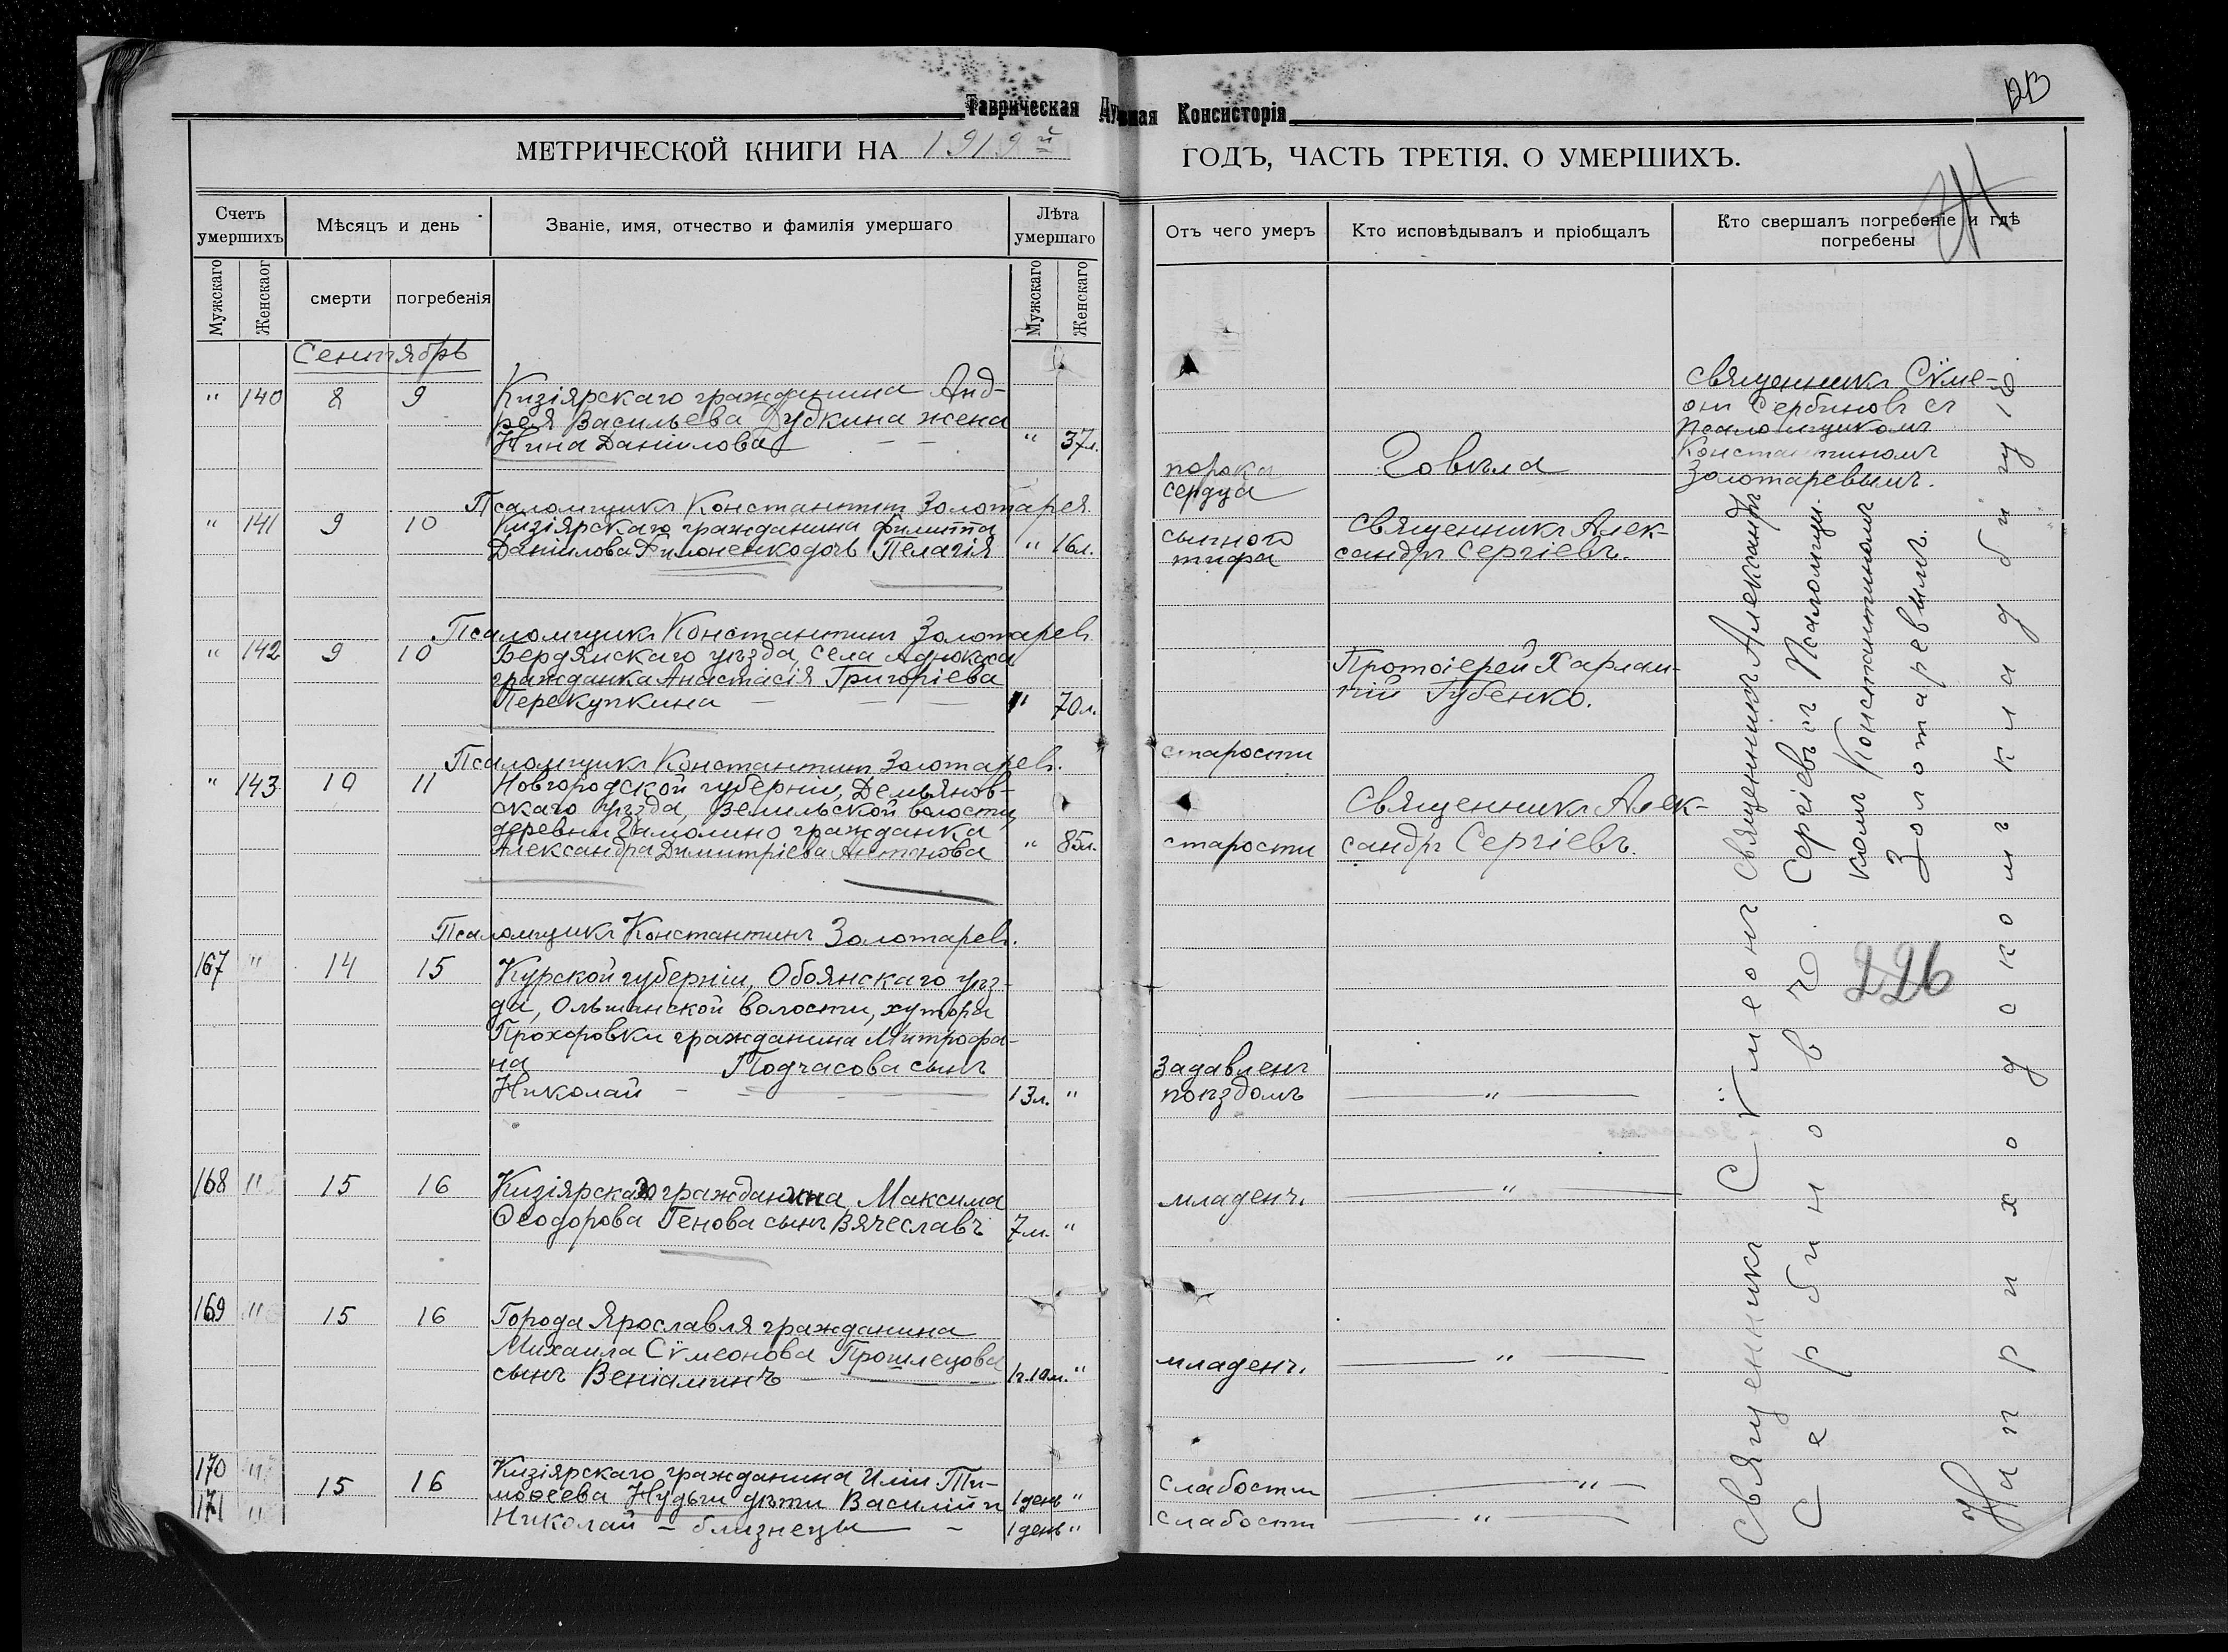 Таврическая Духовная Консисторія
МЕТРИЧЕСКОЙ КНИГИ НА 1919й ГОДЪ, ЧАСТЬ ТРЕТІЯ. О УМЕРШИХЪ.
Счетъ умершихъ
Мѣсяцъ и день
Званіе, имя, отчество и фамилія умершаго
Лѣта умершаго
Отъ чего умеръ
Кто исповѣдывалъ и пріобщалъ
Кто свершалъ погребеніе и гдѣ погребены
Мужскаго
Женскаог
смерти
погребенія
Мужскаго
Женскаго
Сентябрь
" 140 8 9
Кизіярскаго гражданина Анд-
рея Васильева Дудкина жена
Нина Даніилова " 37л.
порока
сердца
Говѣла
Священникъ Сѵме-
онъ Сербиновъ съ
псаломщикомъ
Константиномъ
Золотаревымъ.
Псаломщикъ Константинъ Золотарев
" 141 9 10
Кизіярскаго гражданина Филиппа
Даніилова Филоненко дочь Пелагія " 16л.
сыпного
тифа
Священникъ Алек-
сандръ Сергіевъ.
Псаломщикъ Константинъ Золотаревъ
" 142 9 10
Бердянскаго уѣзда, села
гражданка Анастасія Григоріева
Перекупкина " 70л.
старости
Протоіерей Харлам-
пій Губенко.
Псаломщикъ Константинъ Золотаревъ.
" 143 10 11
Новгородской губерніи, Демьянов-
скаго уѣзда, Велильской волости,
деревни гражданка
Александра Димитріева Антонова " 85л.
старости
Священникъ Алек-
сандръ Сергіевъ.
Псаломщикъ Константинъ Золотаревъ.
167 " 14 15
Курской губерніи, Обоянскаго уѣз-
да, Ольшанской волости, хутора
Прохоровки гражданина Митрофа-
на Подчасова сынъ
Николай 13л. "
Задавленъ
поѣздомъ
"
168 " 15 16
Кизіярскаго гражданина Максима
Ѳеодорова Генова сынъ Вячеславъ 7м. "
младенч.
"
169 " 15 16
Города Ярославля гражданина
Михаила Сѵмеонова Прошлецова
сынъ Веніаминъ 1г.10м. "
младенч.
"
170 "
171 " 15 16
Кизіярскаго гражданина Иліи Ти-
моѳеева Нудьги дѣти Василій и 1день "
Николай – близнецы – 1день "
слабости "
слабости "
Священникъ Сѵмеонъ Священникъ Александръ
Сербиновъ. Сергіевъ съ Псаломщи-
комъ Константиномъ
Золотаревымъ.
226
На приходскомъ кладбищѣ.